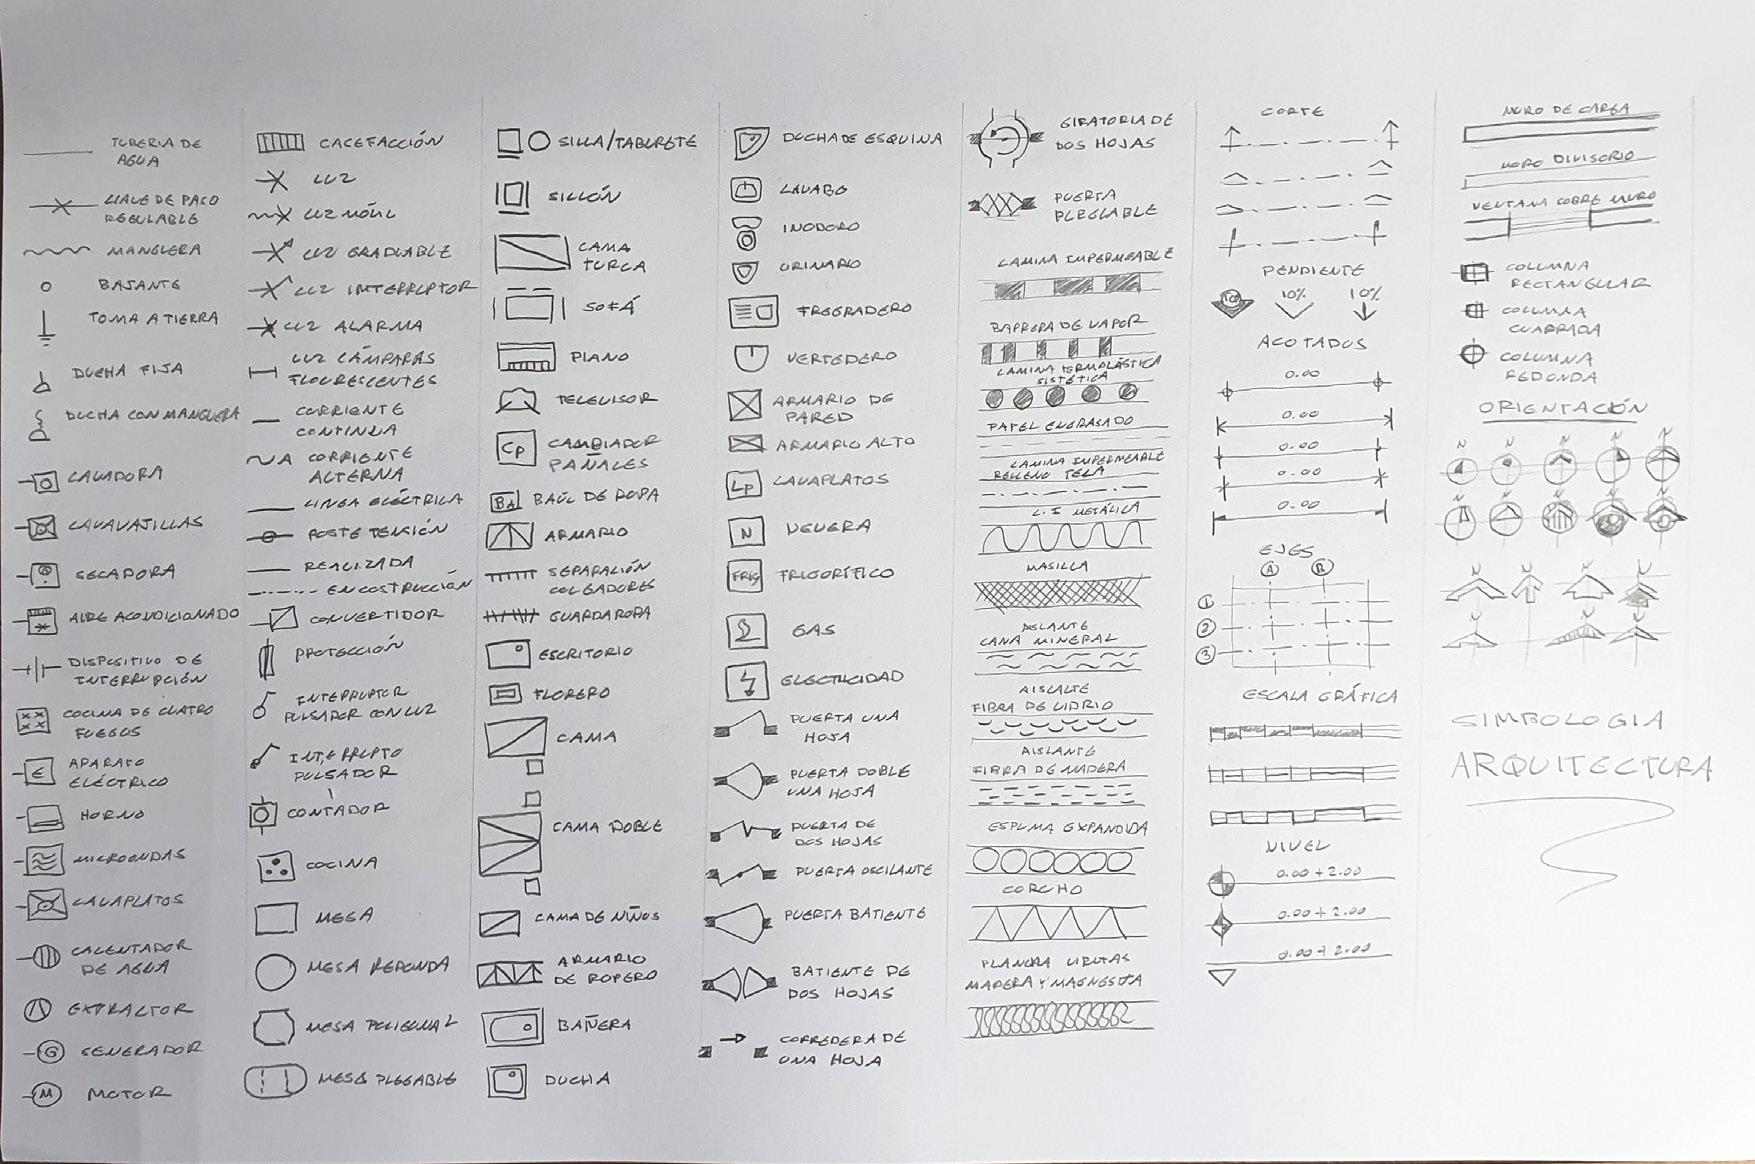 TUBERIA DE
AGUA
LLAVE DE PASO
REGULABLE
MANGUERA
BAJANTE
TOMA A TIERRA
DUCHA FIJA
DUCHA CON MANGUERA
LAVADORA
LAVAVAJILLAS
SECADORA
AIRE ACONDICIONADO
DISPOSITIVO DE
INTERRUPCIÓN
COCINA DE CUATRO
FUEGOS
E
APARATO
ELÉCTRICO
HORNO
MICROONDAS
LAVAPLATOS
CALENTADOR
DE AGUA
EXTRACTOR
G
GENERADOR
M
MOTOR
CALEFACCIÓN
LUZ
LUZ MÓVIL
LUZ GRADUABLE
LUZ INTERRUPTOR
LUZ ALARMA
LUZ LÁMPARAS
FLOURESCENTES
CORRIENTE
CONTINUA
CORRIENTE
ALTERNA
LINEA ELÉCTRICA
POSTE TENSIÓN
REALIZADA
EN COSTRUCCIÓN
CONVERTIDOR
PROTECCIÓN
INTERRUPTOR
PULSADOR CON LUZ
INTERRUPTO
PULSADOR
CONTADOR
COCINA
MESA
MESA REDONDA
MESA POLIGONAL
MESA PLEGABLE
SILLA/TABURETE
SILLÓN
CAMA
TURCA
SOFÁ
PIANO
TELEVISOR
CP
CAMBIADOR
PAÑALES
BA
BAÚL DE ROPA
ARMARIO
SEPARACIÓN
COLGADORES
GUARDAROPA
ESCRITORIO
FLORERO
CAMA
CAMA DOBLE
CAMA DE NIÑOS
ARMARIO
DE ROPERO
BAÑERA
DUCHA
DUCHA DE ESQUINA
LAVABO
INODORO
URINARIO
FREGRADERO
VERTEDERO
ARMARIO DE
PARED
ARMARIO ALTO
LP
LAVAPLATOS
N
NEVERA
FRIG
FRIGORÍFICO
GAS
ELECTICIDAD
PUERTA UNA
HOJA
PUERTA DOBLE
UNA HOJA
PUERTA DE
DOS HOJAS
PUERTA OSCILANTE
PUERTA BATIENTE
BATIENTE DE
DOS HOJAS
CORREDERA DE
UNA HOJA
GIRATORIA DE
DOS HOJAS
PUERTA
PLEGABLE
LAMINA IMPERMEABLE
BARRERA DE VAPOR
LAMINA TERMOPLÁSTICA
SISTÉTICA
PAPEL ENGRASADO
LAMINA IMPERMEABLE
RELLENO TELA
L.I METÁLICA
MASILLA
AISLANTE
LANA MINERAL
AISLATE
FIBRA DE VIDRIO
AISLANTE
FIBRA DE MADERA
ESPUMA EXPANDIDA
CORCHO
PLANCHA VIRUTAS
MADERA Y MAGNESITA
CORTE
PENDIENTE
10%
10%
ACOTADOS
0.00
0.00
0.00
0.00
0.00
EJES
A B
1
2
3
ESCALA GRÁFICA
NIVEL
0.00 + 2.00
0.00 + 2.00
0.00 + 2.00
MURO DE CARGA
MURO DIVISORIO
VENTANA SOBRE MURO
COLUMNA
RECTANGULAR
COLUMNA
CUADRADA
COLUMNA
REDONDA
ORIENTACIÓN
N N N N N
N N N N N
N N N N
N N N
SIMBOLOGIA
ARQUITECTURA